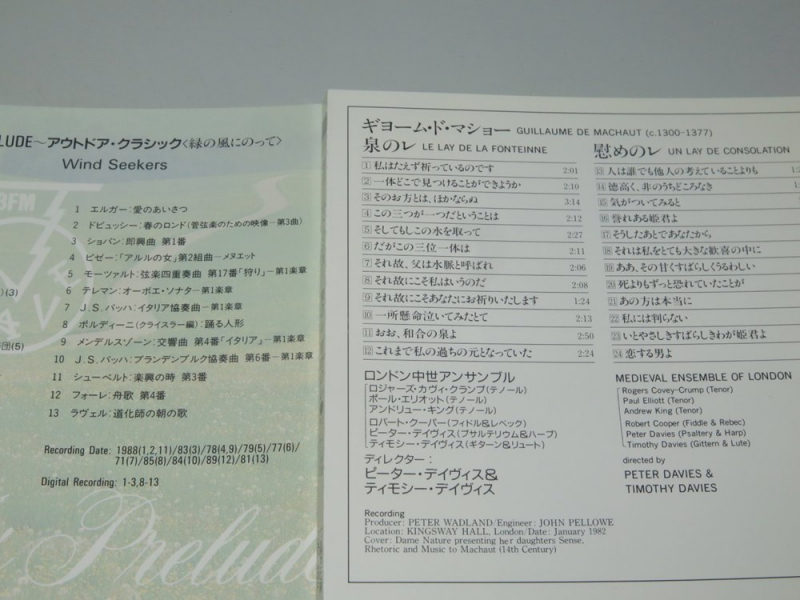 LUDE～アウトドア・クラシック〈緑の風にのって〉
Wind Seekers
3FM
1 エルガー：愛のあいさつ
2 ドビュッシー：春のロンド(管弦楽のための映像－第3曲)
3 ショパン：即興曲 第1番
4 ビゼー：「アルルの女」第2組曲－メヌエット
)(3)
5 モーツァルト：弦楽四重奏曲 第17番「狩り」－第1楽章
6 テレマン：オーボエ・ソナター第1楽章
7 J.S.バッハ：イタリア協奏曲－第1楽章
8 ボルディーニ(クライスラー編)：踊る人形
団(5)
9 メンデルスゾーン：交響曲 第4番「イタリア」－第1楽章
10 J.S.バッハ：ブランデンブルク協奏曲 第6番－第1楽章
11 シューベルト：楽興の時 第3番
12 フォーレ：舟歌 第4番
13 ラヴェル：道化師の朝の歌
Recording Date: 1988(1,2,11)/83(3)/78(4,9)/79(5)/77(6)/
71(7)/85(8)/84(10)/89(12)/81(13)
Digital Recording: 1-3,8-13
Prelude
ギヨーム・ド・マショー GUILLAUME DE MACHAUT (c.1300-1377)
泉のレ LE LAY DE LA FONTEINNE
1 私はたえず祈っているのです 2:01
2 一体どこで見つけることができようか 2:10
3 そのお方とは、ほかならぬ 3:14
4 この三つが一つだということは 2:12
5 そしてもしこの水を取って 2:27
6 だがこの三位一体は 2:11
7 それ故、父は水脈と呼ばれ 2:06
8 それ故にこそ私はいうのだ 2:08
9 それ故にこそあなたにお祈りいたします 1:24
10 一所懸命泣いてみたとて 2:13
11 おお、和合の泉よ 2:50
12 これまで私の過ちの元となっていた 2:24
慰めのレ UN LAY DE CONSOLATION
13 人は誰でも他人の考えていることよりも
14 徳高く、非のうちどころなき
15 気がついてみると
16 誉れある姫君よ
17 そうしたあとであなたから
18 それは私をとても大きな歓喜の中に
19 ああ、その甘くすばらしくうるわしい
20 死よりもずっと恐れていたことが
21 あの方は本当に
22 私には判らない
23 いとやさしきすばらしきわが姫君よ
24 恋する男よ
ロンドン中世アンサンブル
ロジャーズ・カヴィ・クランプ(テノール)
ポール・エリオット(テノール)
アンドリュー・キング(テノール)
ロバート・クーパー(フィドル&レベック)
ピーター・デイヴィス(プサルテリウム&ハープ)
ティモシー・デイヴィス(ギターン&リュート)
ディレクター：
ピーター・デイヴィス&
ティモシー・デイヴィス
MEDIEVAL ENSEMBLE OF LONDON
Rogers Covey-Crump (Tenor)
Paul Elliott (Tenor)
Andrew King (Tenor)
Robert Cooper (Fiddle & Rebec)
Peter Davies (Psaltery & Harp)
Timothy Davies (Gittern & Lute)
directed by
PETER DAVIES &
TIMOTHY DAVIES
Recording
Producer: PETER WADLAND/Engineer: JOHN PELLOWE
Location: KINGSWAY HALL, London/Date: January 1982
Cover: Dame Nature presenting her daughters Sense,
Rhetoric and Music to Machaut (14th Century)